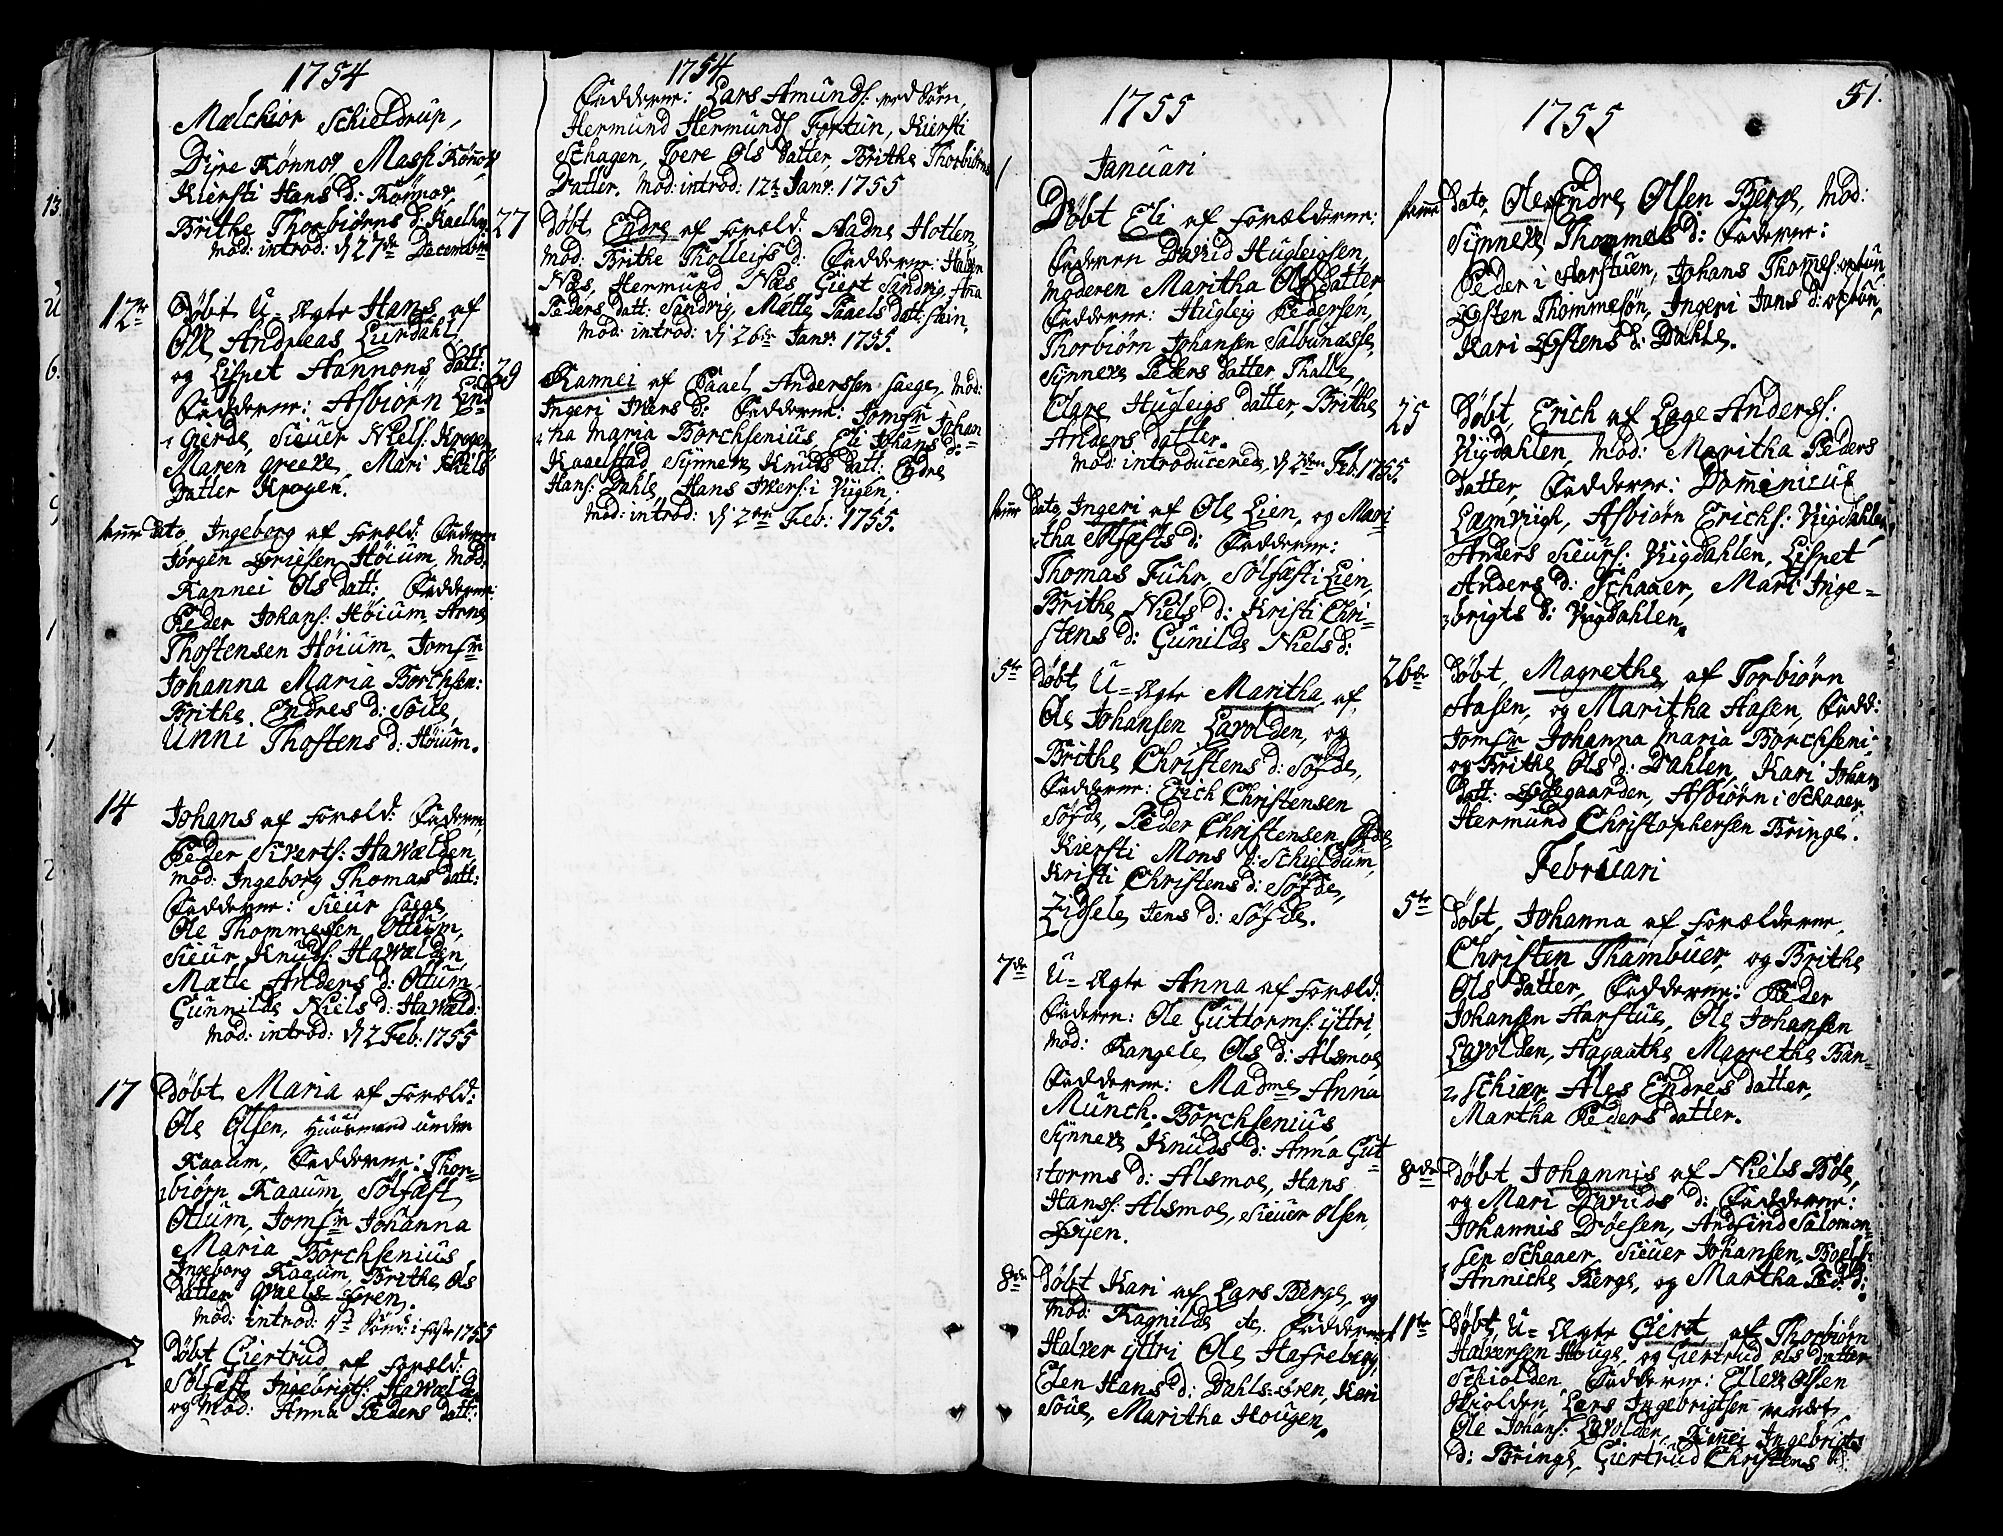 1754
Mælchior Schieldrup,
Dÿre Kønnor Massi
Kiersti Hans d: Kønnor,
Brithe Thorbiørns d:
Mod: introd: d 27de Decembr
12te Døbt U-ægte Hans af
Ole Andreas Lurdahl,
og Lispet Hannons datt:
Fadderne: Asbiørn Lin=
Gierde, Sieuer Niels: Krogen
Maren greeve, Mari Niels
Datter Krogen.
Dato, Ingeborg af foræld:
Jørgen Høium, Mod:
Rannei Ols datt: Fadderne:
Peder Johans: Høium, Arne
Thostensen Høium, Jomfr
Johanna Maria Borchsen:
Brithe Endres d: Soue,
Unni Thostens d: Høium.
14 Johans af foræld: Faderen,
Peder Siverts: Hawælden,
Mod: Ingeborg Thomas datt:
Fadderne: Sieur Sæge,
Ole Thommesen Ottum,
Sieur Knuds: Hawælden,
Mætle Anders d: Otum,
Gunnilde Niels d: Hawæld:
Mod: introd: d 2 Feb: 1755
17 Døbt Maria af foræld:
Ole Olsen, Huusmand under
Kaaum, Fadderne: Thor=
biørn Kaaum, Solfæst
Otum, Jomfr Johanna
Maria Borchsenius
Ingeborg Kaaum, Brithe Ols
Datter
Mod: introd: i faste 1755
Døbt Giertrud af foræld:
Solfæst Ingebrigts: Hawælde
og Mod: Anna Peders datt:
1754
Fadderne: Lars Amunds:
Hermund Hermunds Fortun, Kiersti
Schagen, Tore Ols Datter, Brithe Thorbiørns
Datter. Mod: introd: 12te Janr: 1755
27 Døbt Endre af foræld: Hadne Hotlen,
Mod: Brithe Tholleifs d: Fadderne: Halven
Næs, Hermund Næs, Giert Sandvig, Anna
Peders datt: Sandvig, Mætte Paaels datt:
Mod: introd: d 26de Janr: 1755.
29 Rannei af Paael Anderssen Sæge, Mod:
Ingeri Iwers d: Fadderne: Jomfr Johan=
na Maria Borchsenius, Eli Johans d:
Kaaelstad, Synneve Knuds datt: Endre
Hans: Dahle, Hans Iwers: i Viigen,
Mod: introd: d 2den Feb: 1755.
1755
Januari
1 Døbt Eli af Forælderne:
Faderen David Hugleigsen,
Moderen Maritha Ols datter
Fadderne: Hugleig Pedersen,
Thorbiørn Johansen Salbunæsse,
Synneve Peders datter Thalle,
Clare Hugleigs datter, Brithe
Andens datter.
Mod: introducered, d 2den Feb: 1755.
Dato, Ingeri af Ole Lien, og Mari
tha Solfæsts d: Fadderne:
Thomas Fuhr, Solfæst i Lien,
Brithe Niels d: Kristi Chri-
stens d: Gunilde Niels d:
5te Døbt, U-ægte Maritha, af,
Ole Johansen Lavolden, og
Brithe Christens d: Søfde,
Fadderne: Erich Christensen
Søfde, Peder Christensen,
Kiersti Mons d: Schieldum,
Kristi Christens d: Søfde,
Zidsele Jens d: Søfde.
7de U-ægte Anna af foræld:
Faderen: Ole Guttorms: ÿttri,
Mod: Rangele Ols d: Alsmoe,
Fadderne: Madme Anna
Munch, Borchsenius,
Synneve Knuds d: Anna Gut-
torms d: Alsmoe, Hans
Hanss: Alsmoe, Sieuer Olsen,
Øyen.
8de Døbt Kari af Lars Berge, og
Mod: Ragnilde etc. Fadderne:
Halver ÿttri Ole Hafreberg,
Elen Hans d: Dahls-øren, Kari
Soue, Maritha Hougen,
1755
51.
Dato, Ole af Endre Olsen Berge, Mod:
Synneve Thommes d: Fadderne:
Peder i Aarstuen, Johans Thommes: optun,
Østen Thommesøn, Ingeri Jans d: optun,
Kari Østens d: Dahle.
25 Døbt, Erich af Lage Anderss:
Vigdahlen, Mod: Maritha Peders
Datter, Fadderne: Dominicus
Lamviigh, Asbiørn Erichs: Vigdahlen,
Anders Sieurs: Vigdahlen, Lispet
Anders d: Schaaer, Mari Inge=
brigts d: Vigdahlen.
26de Døbt, Magrethe, af Torbiørn
Aasen, og Maritha Aasen, Fadd:
Jomfr Johanna Maria Borchseni-
og Brithe Ols d: Dahlen, Kari Johans
datt: Ødegaarden, Asbiørn i Schaaer,
Hermund Christophersen Bringe.
Februari
5te Døbt, Johanna af Forælderne,
Christen Thambuer, og Brithe
Ols datter, Fadderne: Peder
Johansen Aarstue, Ole Johansen
Lavolden, Aagaathe Magrethe Ban=
Schiær, Ales Endres datter,
Martha Peders datter.
8de Døbt, Johannis af Niels Bøe,
og Mari Davids d: Fadderne:
Johannis Drøesen, Andfind Salomon
sen Schaaer, Sieuer Johansen,
Anniche Berge, og Martha Ped: d:
11te Døbt, U-ægte Giert, af Thorbiørn
Halversen Houge, og Giertrud Ols datter
Schiolden Fadderne: Ellen Olsen
Skiolden, Lars Ingebrigtsen
Ole Johans: Lavolden, Rannei Ingebrigts
d: Bringe, Giertrud Christens d: